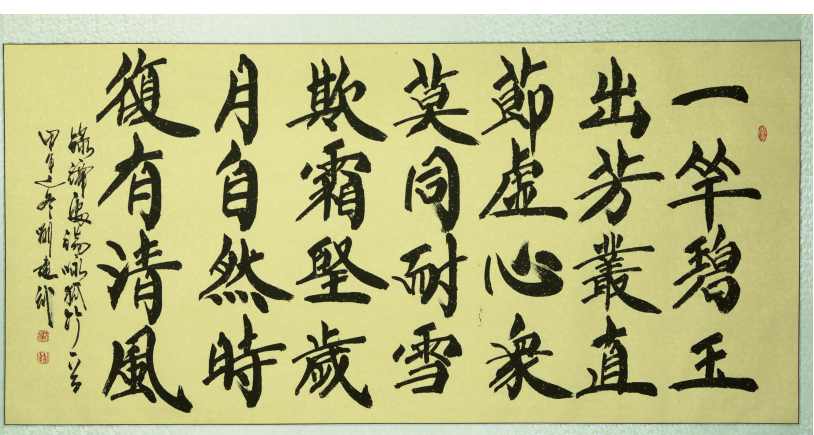 一竿碧玉
出芳叢直
莭虛心衆
莫同耐雪
欺霜堅歲
月自然時
復有清風
錄譚處端咏竹一首
甲午之冬劉建